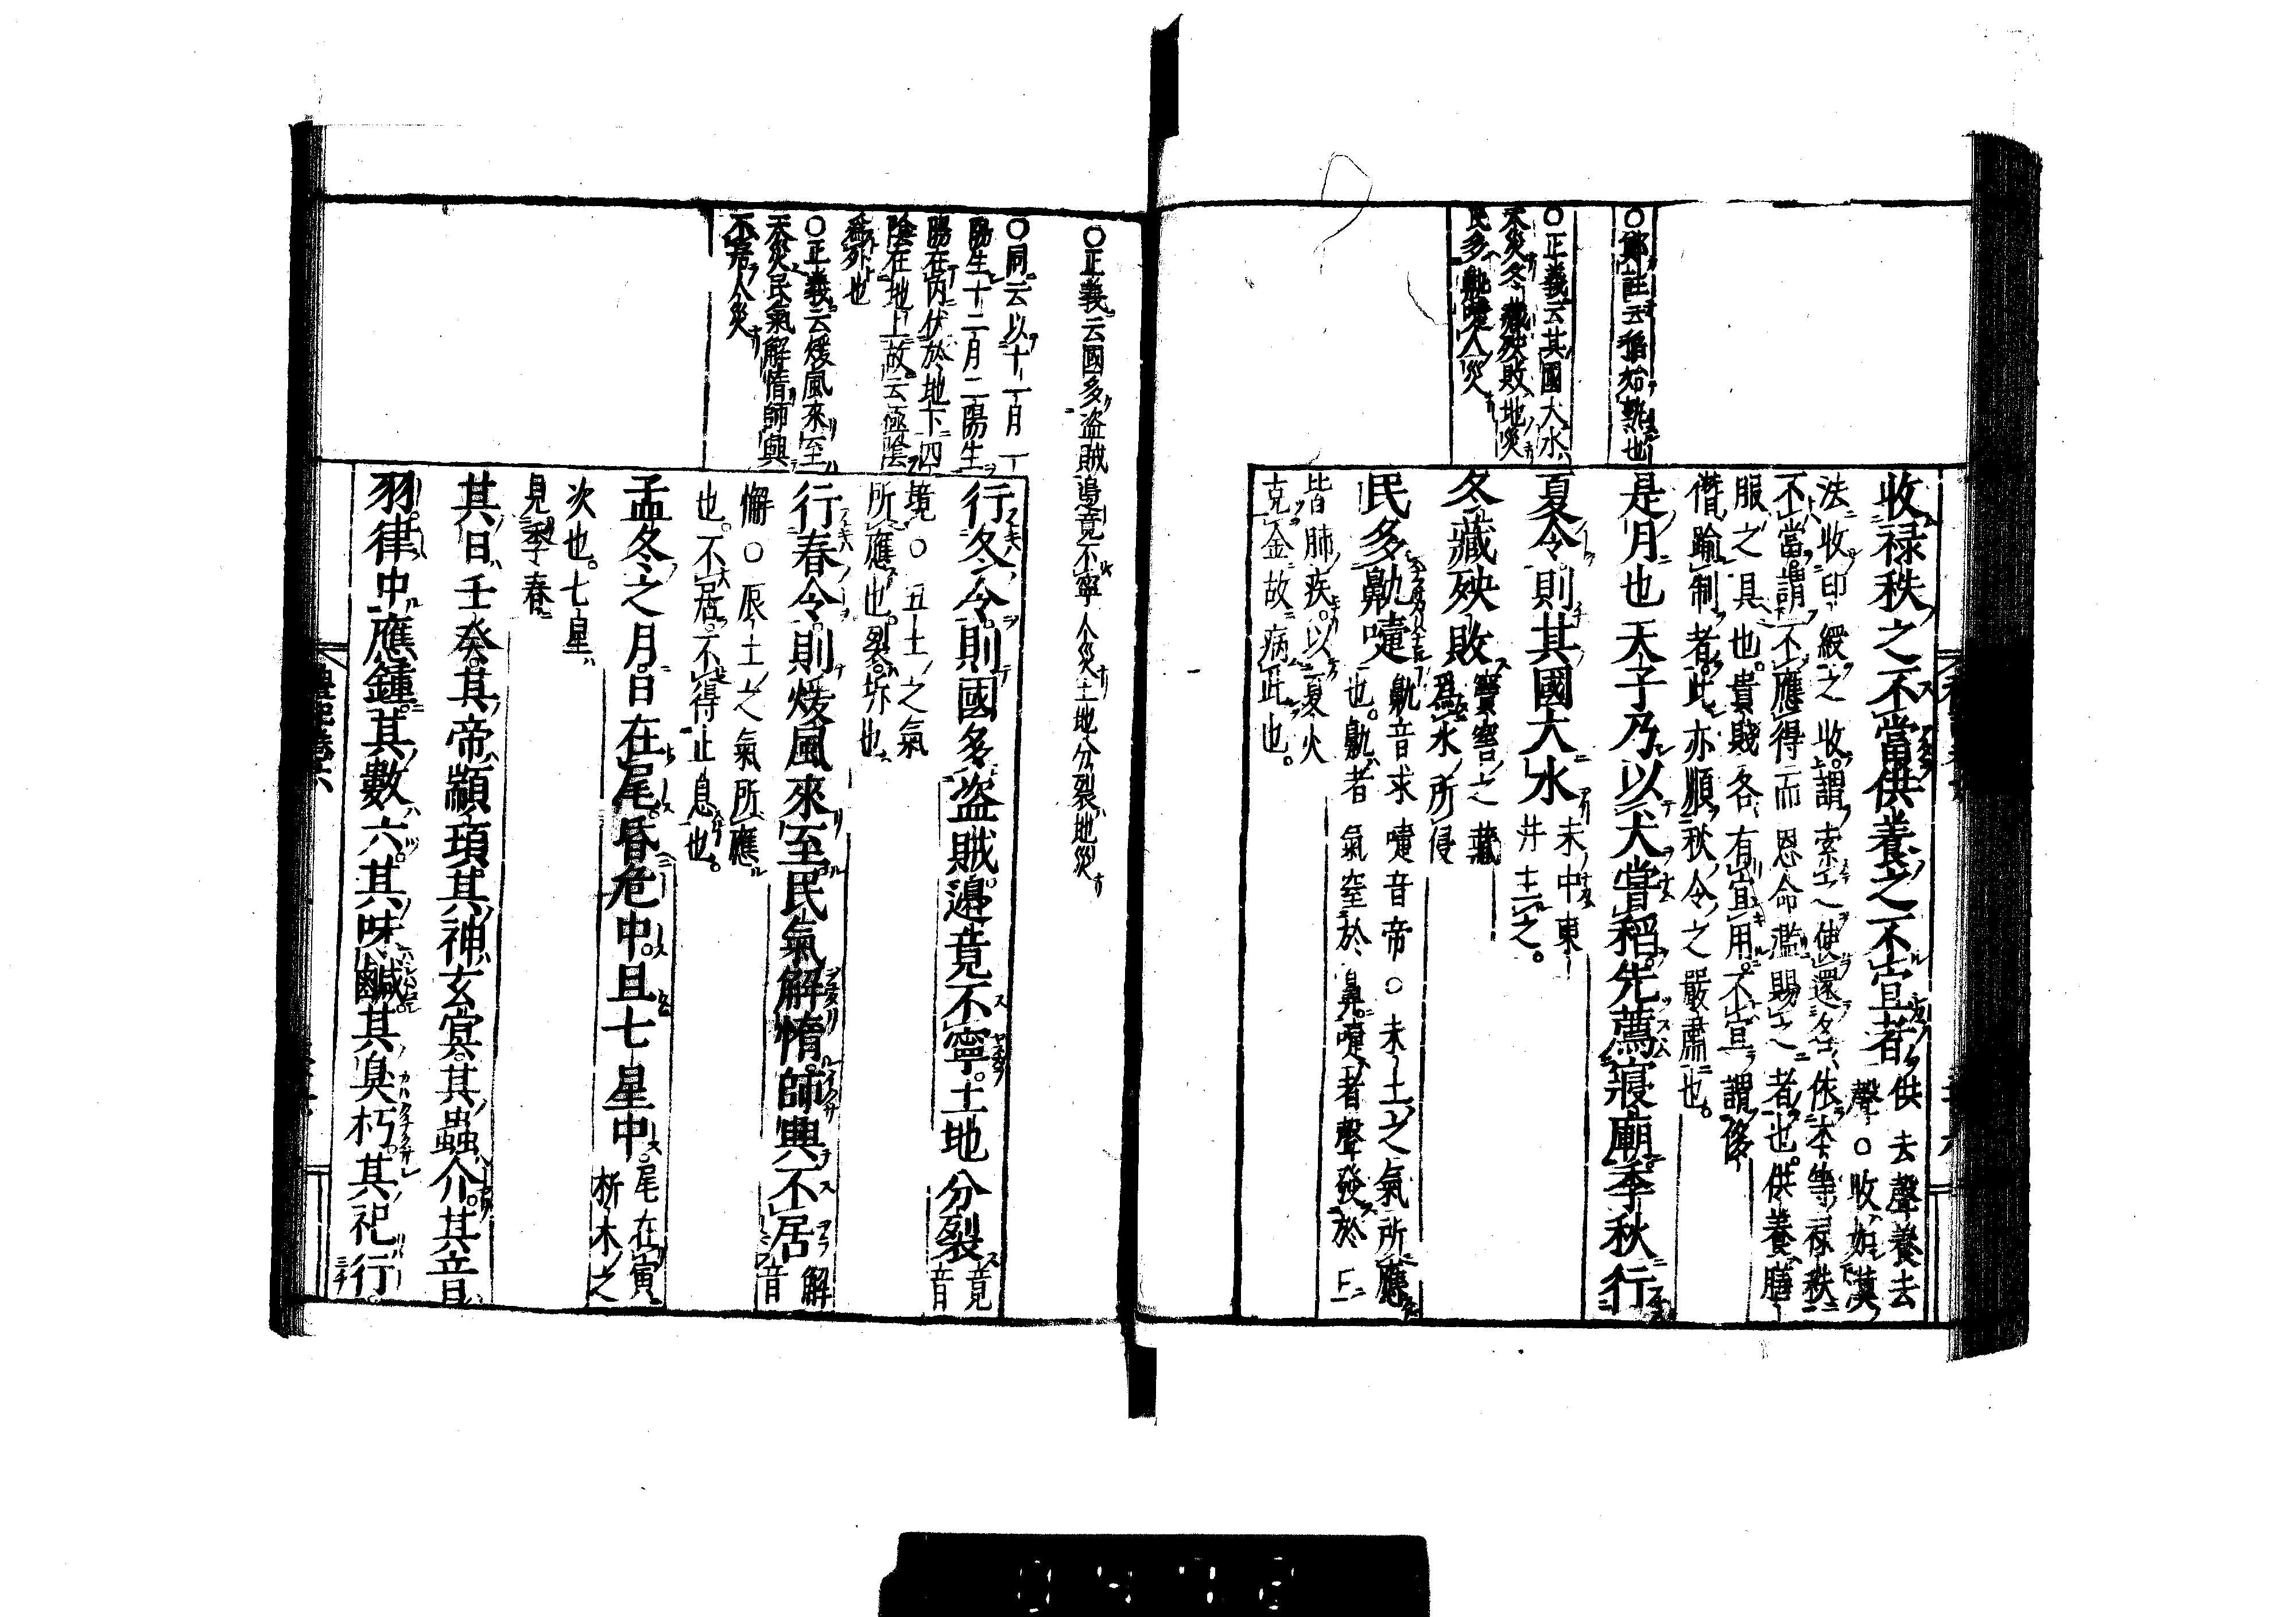 ○鄭註云稻始熟也
○正義云其國大水
天災冬藏殃敗地災
民多鼽嚏人災
收祿秩之不當供養之不宜者供去聲養去
聲○收如漢
法收印綬之收謂索之使還各依本等祿秩
不當謂不應得而恩命濫賜之者也供養膳
服之具也貴賤各有宜用不宜謂侈
僭踰制者此亦順秋令之嚴肅也
是月也天子乃以犬嘗稻先薦寢廟季秋行
夏令則其國大水未中東
井主之
冬藏殃敗竇窖之藏
爲水所侵
民多鼽嚏鼽音求嚏音帝○未土之氣所應
也鼽者氣窒於鼻嚏者聲發於上
皆肺疾以夏火
克金故病此也
○正義云國多盜賊邊竟不寧人災土地分裂地災
○同云以十一月一
陽生十二月二陽生
陽在內伏於地下四
陰在地上故云極陰
爲外也
○正義云煖風來至
天災民氣解惰師興
不居人災
行冬令則國多盜賊邊竟不寧土地分裂竟
音
境○丑土之氣
所應也裂坼也
行春令則煖風來至民氣解惰師興不居解
音
懈○辰土之氣所應
也不居不得止息也
孟冬之月日在尾昏危中旦七星中尾在寅
析木之
次也七星
見季春
其日壬癸其帝顓頊其神玄冥其蟲介其音
羽律中應鍾其數六其味鹹其臭朽其祀行